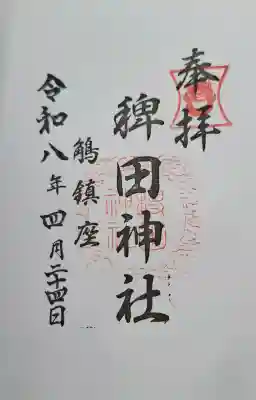 奉拝
稗田神社
鵤鎮座
令和八年四月二十四日